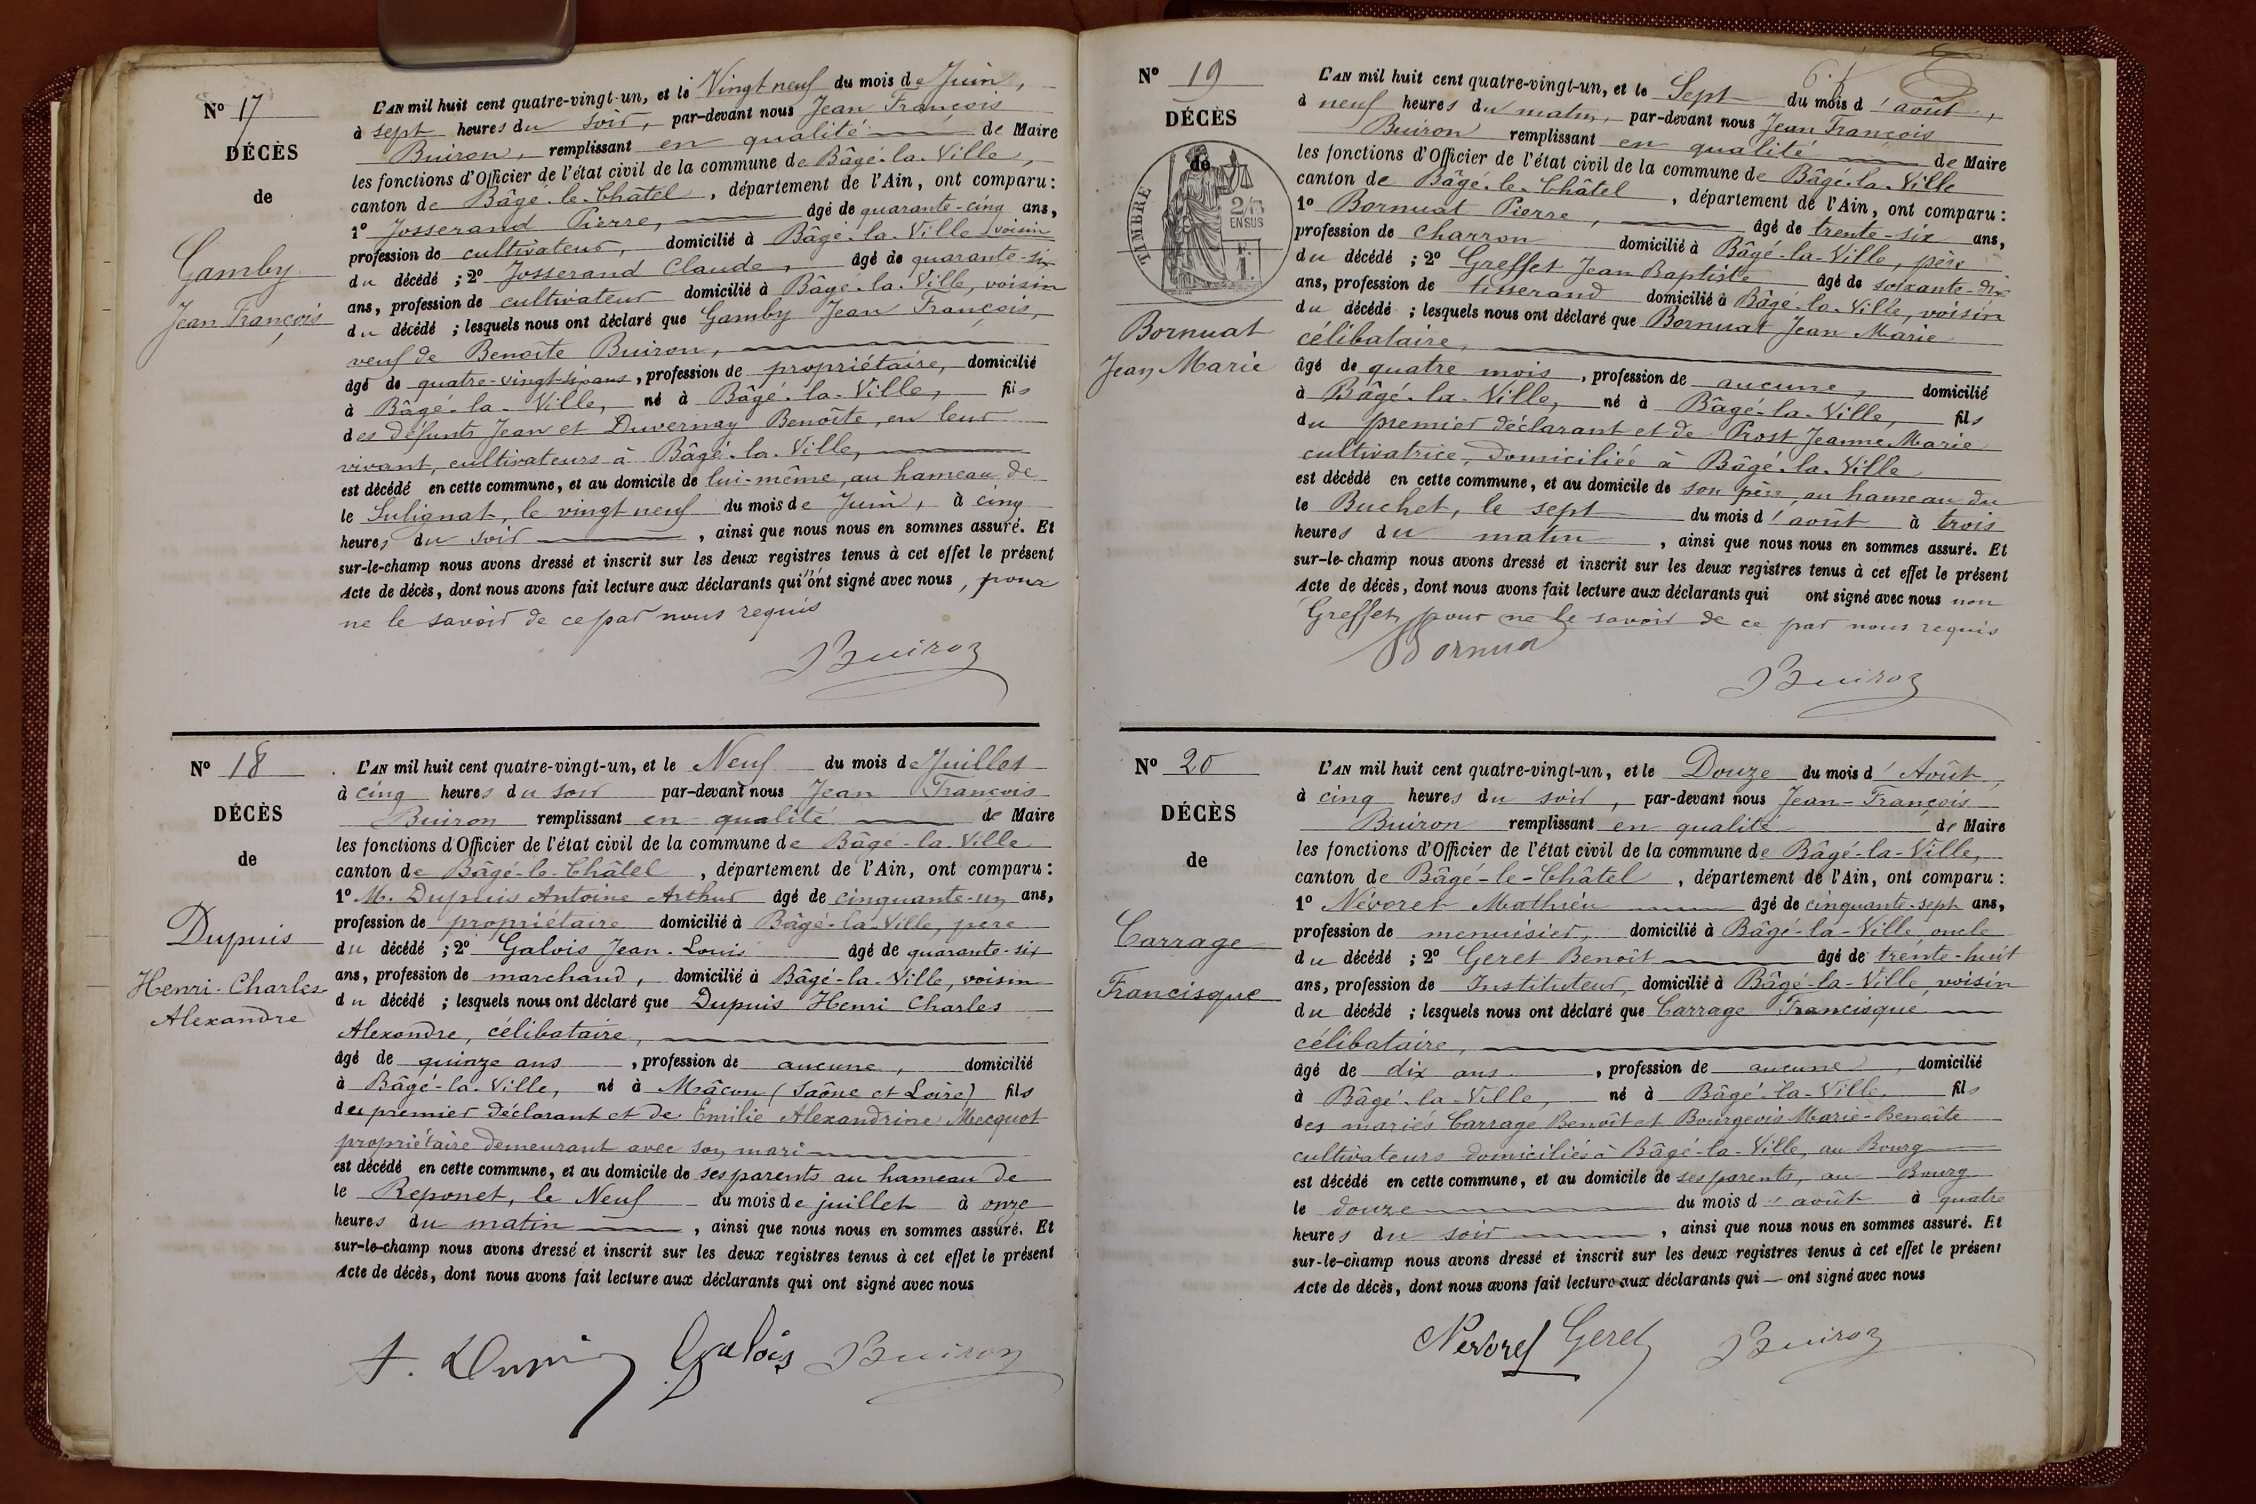 N° 17
DÉCÈS
de
Gamby
Jean François
L'AN mil huit cent quatre-vingt-un, et le Vingt neuf du mois de Juin,
à sept heures du soir, par-devant nous Jean François
Buiron, remplissant en qualité de Maire
les fonctions d'Officier de l'état civil de la commune de Bâgé-la-Ville,
canton de Bâgé-le-Châtel, département de l'Ain, ont comparu:
1° Josserand Pierre, âgé de quarante-cinq ans,
profession de cultivateur, domicilié à Bâgé-la-Ville voisin
du décédé; 2° Josserand Claude, âgé de quarante-six
ans, profession de cultivateur domicilié à Bâgé-la-Ville, voisin
du décédé; lesquels nous ont déclaré que Gamby Jean François,
veuf de Benoîte Buiron,
âgé de quatre-vingt-six ans, profession de propriétaire, domicilié
à Bâgé-la-Ville, né à Bâgé-la-Ville, fils
des défunts Jean et Duvernay Benoîte, en leur
vivant, cultivateurs à Bâgé-la-Ville,
est décédé en cette commune, et au domicile de lui-même, au hameau de
le Sulignat, le vingt neuf du mois de Juin, à cinq
heures du soir, ainsi que nous nous en sommes assuré. Et
sur-le-champ nous avons dressé et inscrit sur les deux registres tenus à cet effet le présent
Acte de décès, dont nous avons fait lecture aux déclarants qui n'ont signé avec nous, pour
ne le savoir de ce par nous requis
Buiron
N° 18
DÉCÈS
de
Dupuis
Henri-Charles
Alexandre
L'AN mil huit cent quatre-vingt-un, et le Neuf du mois de Juillet
à cinq heures du soir par-devant nous Jean François
Buiron remplissant en qualité de Maire
les fonctions d'Officier de l'état civil de la commune de Bâgé-la-Ville
canton de Bâgé-le-Châtel, département de l'Ain, ont comparu:
1° M. Dupuis Antoine Arthur âgé de cinquante-un ans,
profession de propriétaire domicilié à Bâgé-la-Ville, père
du décédé; 2° Galois Jean-Louis âgé de quarante-six
ans, profession de marchand, domicilié à Bâgé-la-Ville, voisin
du décédé; lesquels nous ont déclaré que Dupuis Henri Charles
Alexandre, célibataire,
âgé de quinze ans, profession de aucune, domicilié
à Bâgé-la-Ville, né à Mâcon (Saône et Loire) fils
du premier déclarant et de Emilie Alexandrine Mecquot
propriétaire demeurant avec son mari
est décédé en cette commune, et au domicile de ses parents au hameau de
le Reponet, le Neuf du mois de juillet à onze
heures du matin, ainsi que nous nous en sommes assuré. Et
sur-le-champ nous avons dressé et inscrit sur les deux registres tenus à cet effet le présent
Acte de décès, dont nous avons fait lecture aux déclarants qui ont signé avec nous
A. Dupuis Galois Buiron
N° 19
DÉCÈS
de
TIMBRE
2/10 EN SUS
Bornuat
Jean Marie
L'AN mil huit cent quatre-vingt-un, et le Sept du mois d'août,
à neuf heures du matin, par-devant nous Jean François
Buiron remplissant en qualité de Maire
les fonctions d'Officier de l'état civil de la commune de Bâgé-la-Ville
canton de Bâgé-le-Châtel, département de l'Ain, ont comparu:
1° Bornuat Pierre, âgé de trente-six ans,
profession de charron domicilié à Bâgé-la-Ville, père
du décédé; 2° Greffet Jean Baptiste âgé de soixante-dix
ans, profession de tisserand domicilié à Bâgé-la-Ville, voisin
du décédé; lesquels nous ont déclaré que Bornuat Jean Marie
célibataire,
âgé de quatre mois, profession de aucune, domicilié
à Bâgé-la-Ville, né à Bâgé-la-Ville, fils
du premier déclarant et de Prost Jeanne Marie
cultivatrice, domiciliée à Bâgé-la-Ville
est décédé en cette commune, et au domicile de son père, au hameau du
le Buchet, le sept du mois d'août à trois
heures du matin, ainsi que nous nous en sommes assuré. Et
sur-le-champ nous avons dressé et inscrit sur les deux registres tenus à cet effet le présent
Acte de décès, dont nous avons fait lecture aux déclarants qui ont signé avec nous non
Greffet, pour ne le savoir de ce par nous requis
Bornua
Buiron
N° 20
DÉCÈS
de
Carrage
Francisque
L'AN mil huit cent quatre-vingt-un, et le Douze du mois d'Août,
à cinq heures du soir, par-devant nous Jean-François
Buiron remplissant en qualité de Maire
les fonctions d'Officier de l'état civil de la commune de Bâgé-la-Ville,
canton de Bâgé-le-Châtel, département de l'Ain, ont comparu:
1° Névoret Mathieu âgé de cinquante-sept ans,
profession de menuisier, domicilié à Bâgé-la-Ville oncle
du décédé; 2° Geret Benoît âgé de trente-huit
ans, profession de Instituteur, domicilié à Bâgé-la-Ville, voisin
du décédé; lesquels nous ont déclaré que Carrage Francisque
célibataire,
âgé de dix ans, profession de aucune, domicilié
à Bâgé-la-Ville, né à Bâgé-la-Ville, fils
des mariés Carrage Benoît et Bourgeois Marie-Benoîte
cultivateurs domiciliés à Bâgé-la-Ville, au Bourg
est décédé en cette commune, et au domicile de ses parents, au Bourg
le douze du mois d'août à quatre
heures du soir, ainsi que nous nous en sommes assuré. Et
sur-le-champ nous avons dressé et inscrit sur les deux registres tenus à cet effet le présent
Acte de décès, dont nous avons fait lecture aux déclarants qui — ont signé avec nous
Nevoret Geret Buiron